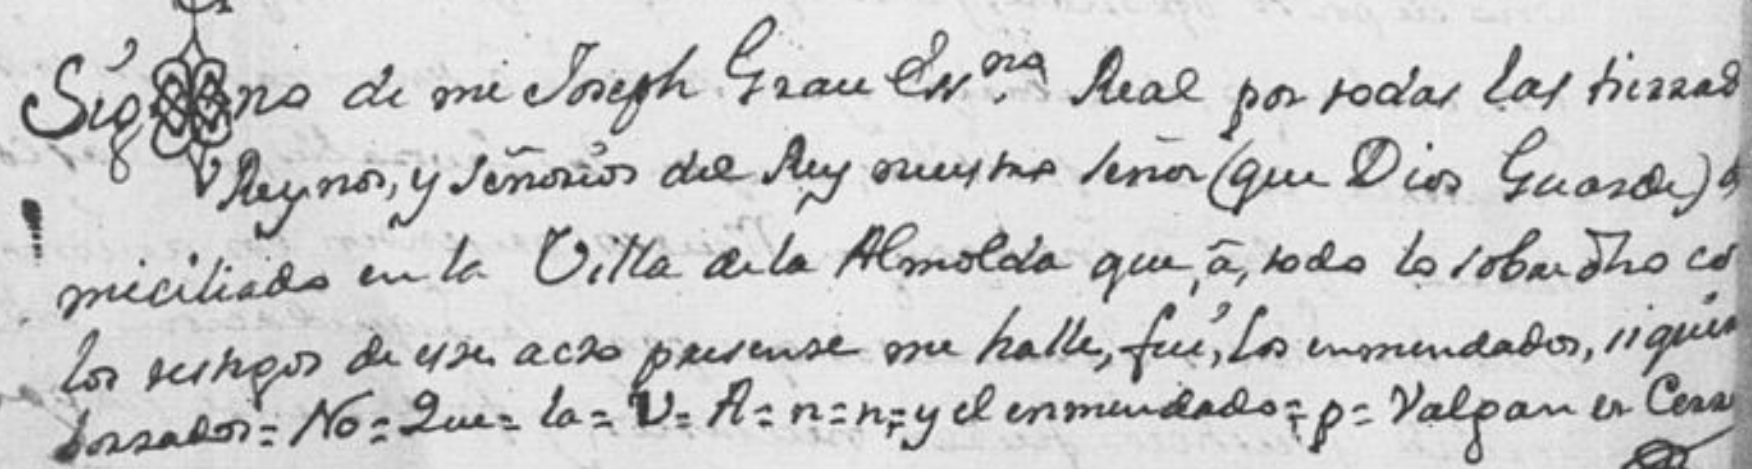 Sig no de mi Joseph Grau Essno. Real por todas las tierras
Reynos, y señorios del Rey nuestro señor (que Dios Guarde)
miciliado en la Villa de la Almolda que, â, todo lo sobredho co
los testigos de este acto presente me halle, fuí, los enmendados, siguien
borrados= No= Que= la= V= A= n= n,= y el enmendado= p= Valgan et Cerre